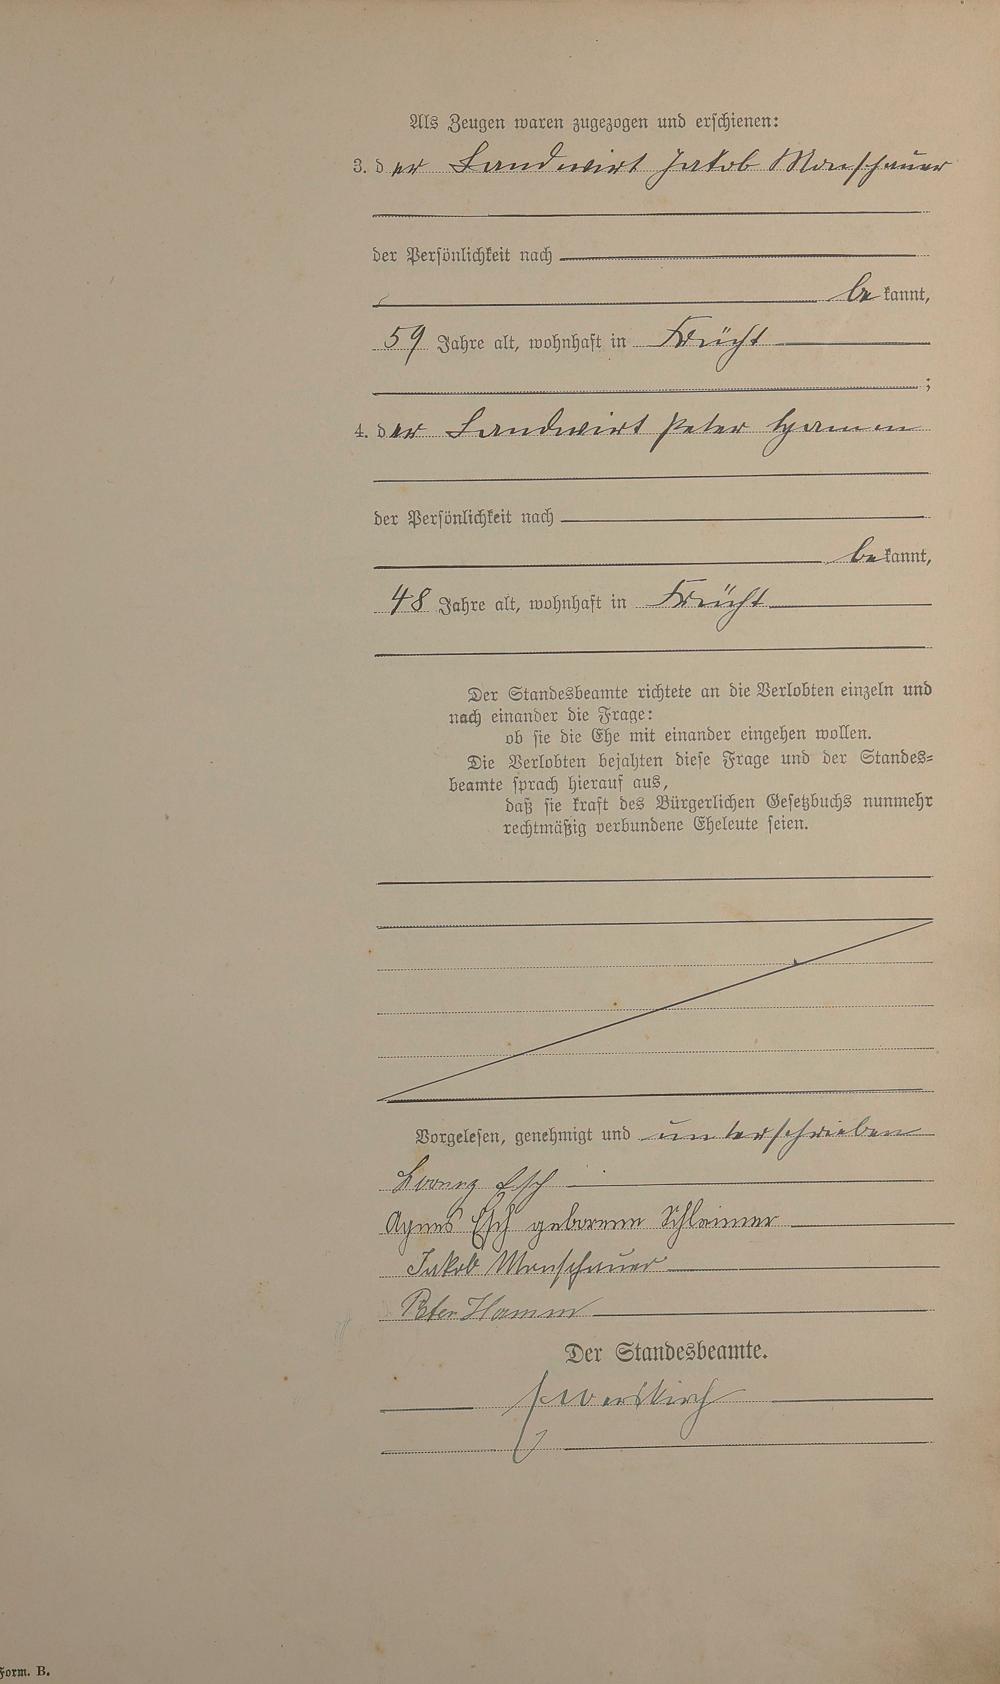 Als Zeugen waren zugezogen und erschienen:
3. der Landwirt Jakob Monschauer
der Persönlichkeit nach
bekannt,
59 Jahre alt, wohnhaft in Frücht
;
4. der Landwirt Peter Hamm
der Persönlichkeit nach
bekannt,
48 Jahre alt, wohnhaft in Frücht
Der Standesbeamte richtete an die Verlobten einzeln und
nach einander die Frage:
ob sie die Ehe mit einander eingehen wollen.
Die Verlobten bejahten diese Frage und der Standes=
beamte sprach hierauf aus,
daß sie kraft des Bürgerlichen Gesetzbuchs nunmehr
rechtmäßig verbundene Eheleute seien.
Vorgelesen, genehmigt und unterschrieben
Esch
Agnes Esch geborene Schleimer
Jakob Monschauer
Peter Hamm
Der Standesbeamte.
Form. B.